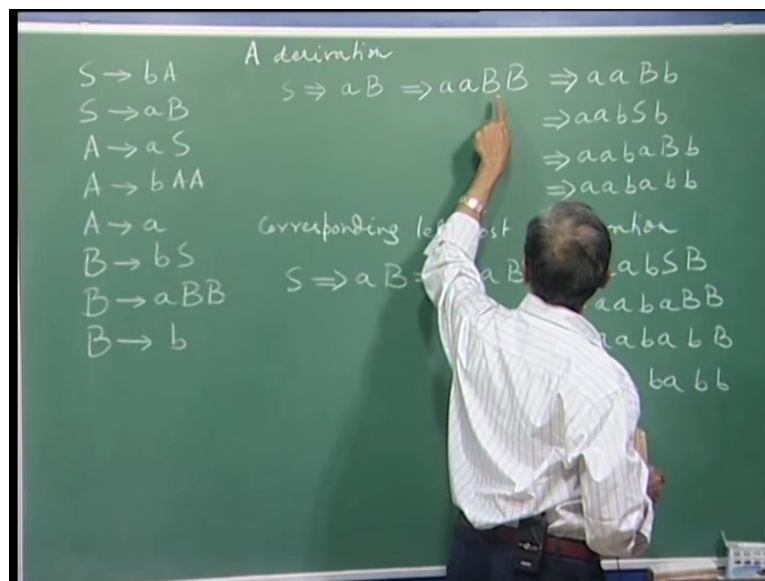 S → bA
S → aB
A → aS
A → bAA
A → a
B → bS
B → aBB
B → b
A derivation
S ⇒ aB ⇒ aaBB ⇒ aaBb
⇒ aabSb
⇒ aabaBb
⇒ aababb
Corresponding
S ⇒ aB aB abSB
aabaBB
aababB
babb